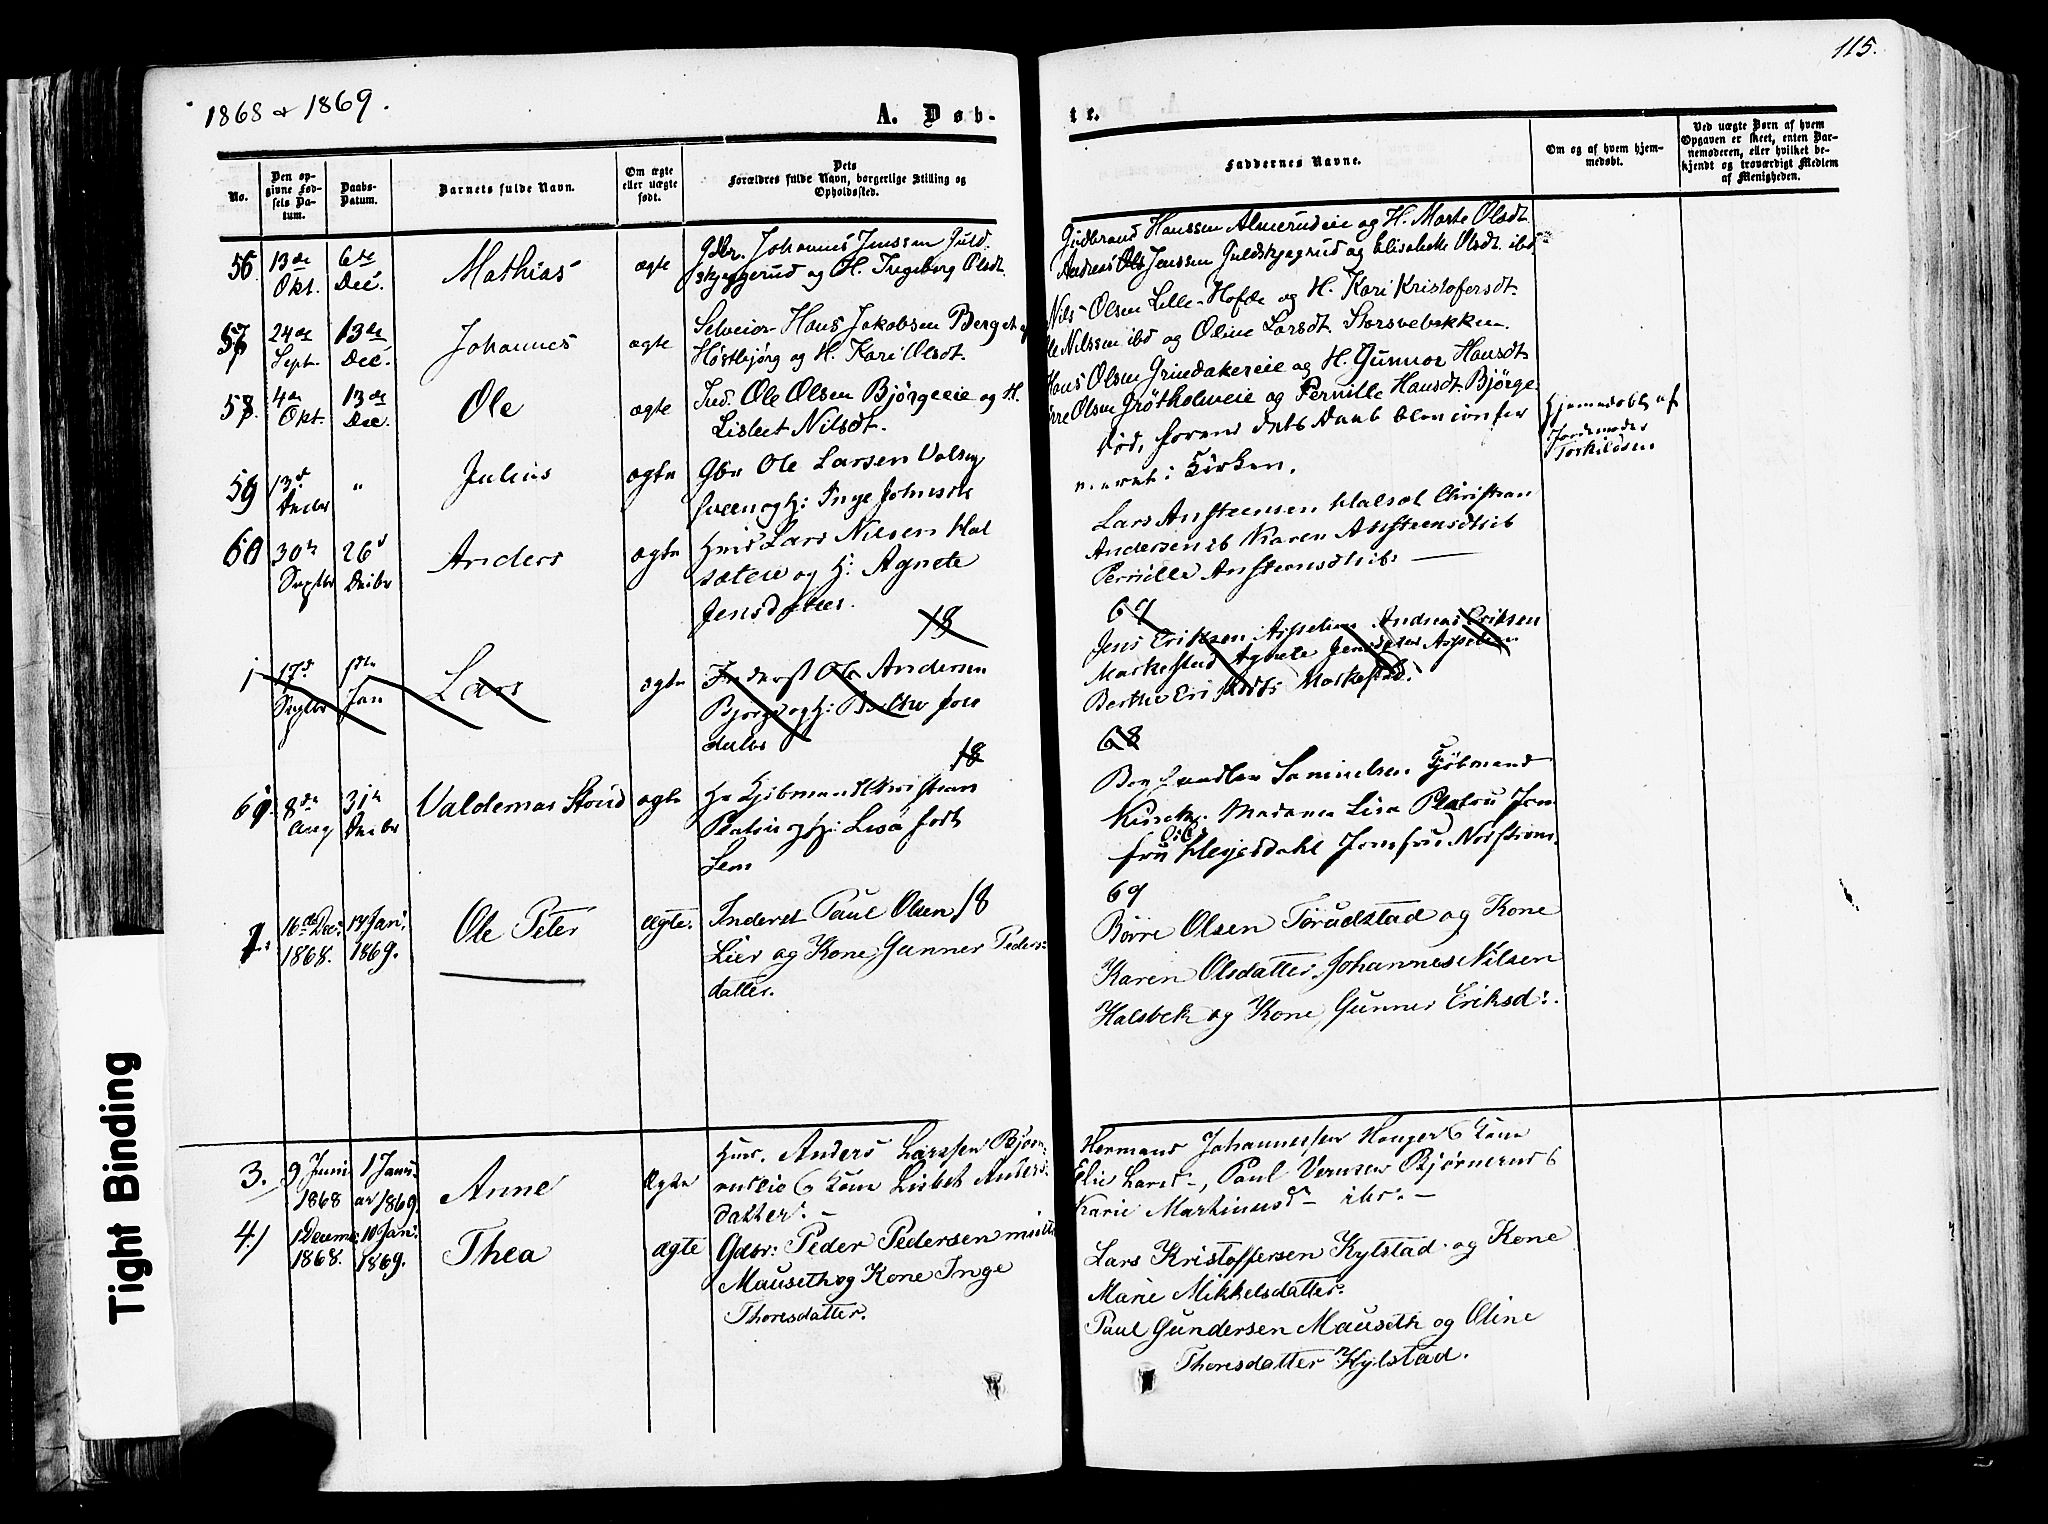 115.
1868 & 1869.
A. Døb-
te.
No.
Den op-
givne Fød-
sels Da-
tum.
Daabs-
Datum.
Barnets fulde Navn.
Om ægte
eller uægte
født.
Dets
Forældres fulde Navn, borgerlige Stilling og
Opholdssted.
Faddernes Navne.
Om og af hvem hjem-
medøbt.
Ved uægte Børn af hvem
Opgaven er skeet, enten Bar-
nemoderen, eller hvilket be-
kjendt og troværdigt Medlem
af Menigheden.
56.
13de
Okt.
6te
Dec.
Mathias
ægte
Gdbr. Johannes Jenssen Guld-
skjeggerud og H. Ingeborg Olsdt.
Gudbrand Hanssen Almerudeie og H. Marte Olsdt.
Andreas Jenssen Guldskjegrud og Elisabeth Olsdt. ibd.
57
24de
Sept.
13de
Dec.
Johannes
ægte
Selveier Hans Jakobsen Berget af
Høstbjørg og H. Kari Olsdt.
Nils Olsen Lille-Hofde og H. Kari Kristofersdt.
Nilssen ibd og Oline Larsdt. Storsvebakken.
58.
4de
Okt.
13de
Dec.
Ole
ægte
Ind. Ole Olsen Bjørgeeie og H.
Lisbet Nilsdt.
Hans Olsen Grindakereie og H. Gunnor Hansdt.
Olsen Grøtholmeie og Pernille Hansdt. Bjørge
59
13d
"
Julius
ægte
Gbr Ole Larsen Volsey
sveen og H: Inge Johnsdt
død, førend dets Daab blev confir
meret i Kirken.
Hjemmedøbt af
Jordemoder
Torkildsen
60
30te
Septbr
26d
Decbr
Anders
ægte
Lars Nilsen Hal
sæteie og H: Agnete
Jensdatter.
Lars Ansteensen Halsæt Christian
Andersen ib Karen Ansteensdt ib
Pernille Ansteensdt ib.
18
67
1
17d
Septbr
1ste
Jan
Lars
ægte
Inderst Ole Andersen
Bjørge og H: Berthe Jens
datter
Jens Eriksen Asselien Andreas Eriksen
Markestad Agnete Jensdatter Asselien
Berthe Eriksdt Markestad.
18
68
61.
8de
Aug
31te
Decbr
Valdemar Stoud
ægte
Hr Kjøbmand Christian
Platou og H: Lisa født
Lem
Boghandler Samuelsen Kjøbmand
Madame Lisa Platou Jom
fru Hejesdahl Jomfru Nordstrøm.
18
69
2.
16de Dec:
1868.
17 Jan:
1869.
Ole Peter
ægte.
Inderst Paul Olsen
Lier og Kone Gunner Peders-
datter.
Børre Olsen Torudstad og Kone
Karen Olsdatter, Johannes Nilsen
Halsbek og Kone Gunner Eriksd:.
3.
9 Juni
1868
1 Janu
ar 1869.
Anne
Ægte
Husm. Anders Larssen Bjørn
rudeie & Kone Lisbet Anders-
datter. –
Hermand Johannessen Hougen & Kone
Elie Larsd-, Paul Iversen Bjørnerud &
Karie Martinusd – ibd: –
4.)
1 Decem:
1868.
10 Jan:
1869.
Thea
ægte
Gdbr: Peder Pedersen midtre
Mauseth og Kone Inge
Thoresdatter.
Lars Kristoffersen Kylstad og Kone
Marie Mikkelsdatter.
Paul Gundersen Mauseth og Oline
Thoresdatter Kylstad.
Tight Binding